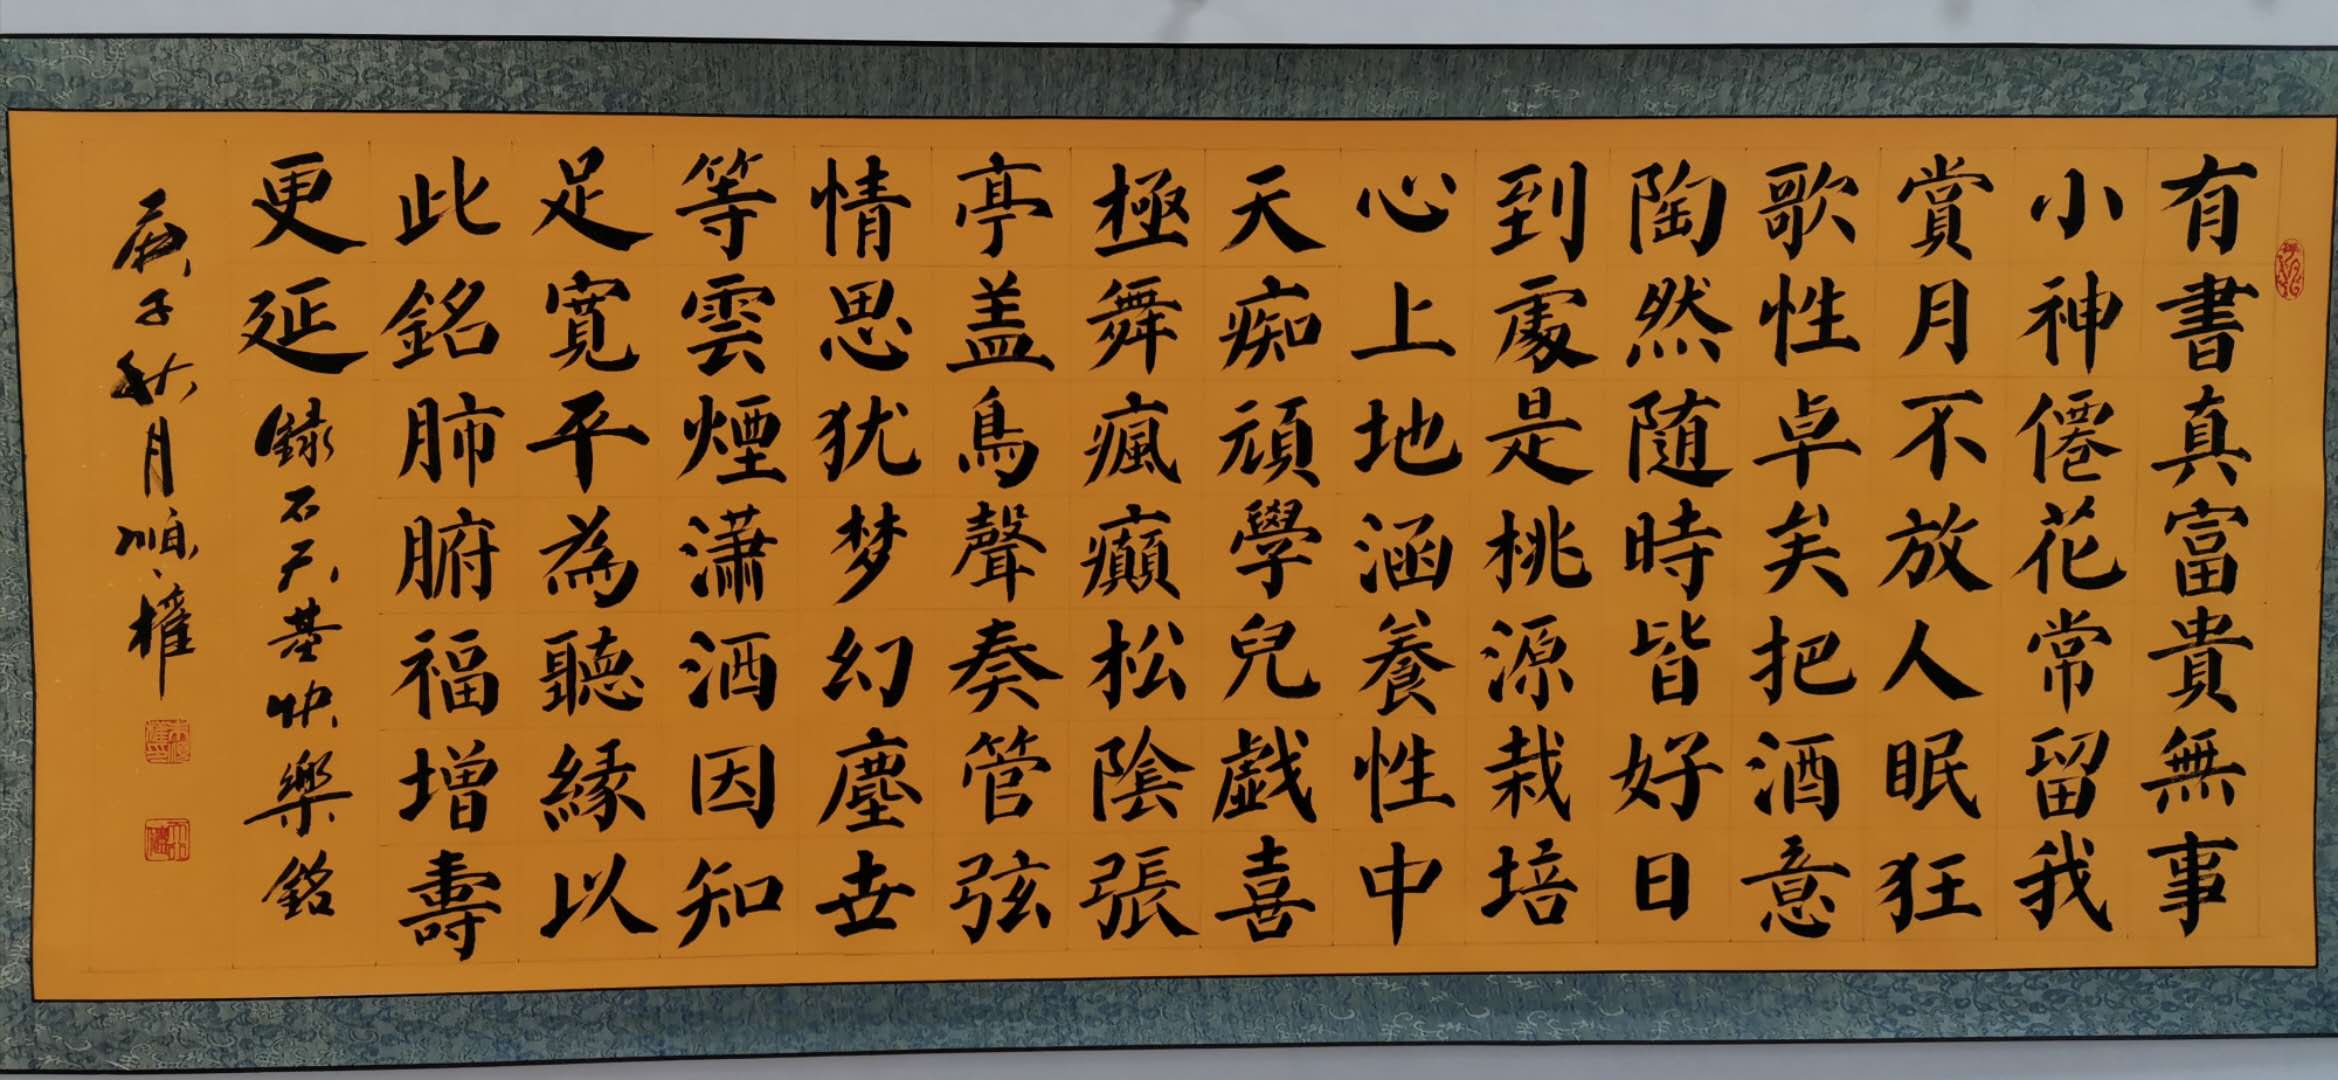 有書真富貴無事
小神僊花常留我
賞月不放人眠狂
歌性卓矣把酒意
陶然随時皆好日
到處是桃源栽培
心上地涵養性中
天痴頑學兒戯喜
極舞瘋癲松陰張
亭盖鳥聲奏管弦
情思犹梦幻塵世
等雲煙潇洒因知
足寬平為聽緣以
此銘肺腑福增壽
更延 録石天基快樂銘
庚子秋月順權